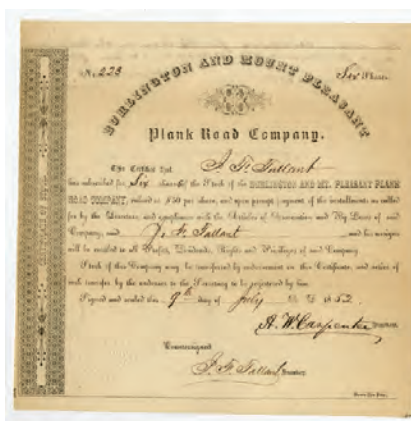 No. 223
Six Shares
BURLINGTON AND MOUNT PLEASANT
Plank Road Company.
This Certifies That J. F. Tallant
has subscribed for Six shares of the Stock of the BURLINGTON AND MT. PLEASANT PLANK
ROAD COMPANY, valued at $50 per share, and upon prompt payment of the installments as called
for by the Directors, and compliance with the Articles of Association and By Laws of said
Company, said J. F. Tallant and his assigns
will be entitled to all Profits, Dividends, Rights and Privileges of said Company
Stock of this Company may be transferred by endorsement on this Certificate, and notice of
such transfer by the endorsee to the Secretary to be registered by him.
Signed and sealed this 9th day of July 1852.
A. W. Carpenter
Countersigned
J. F. Tallant